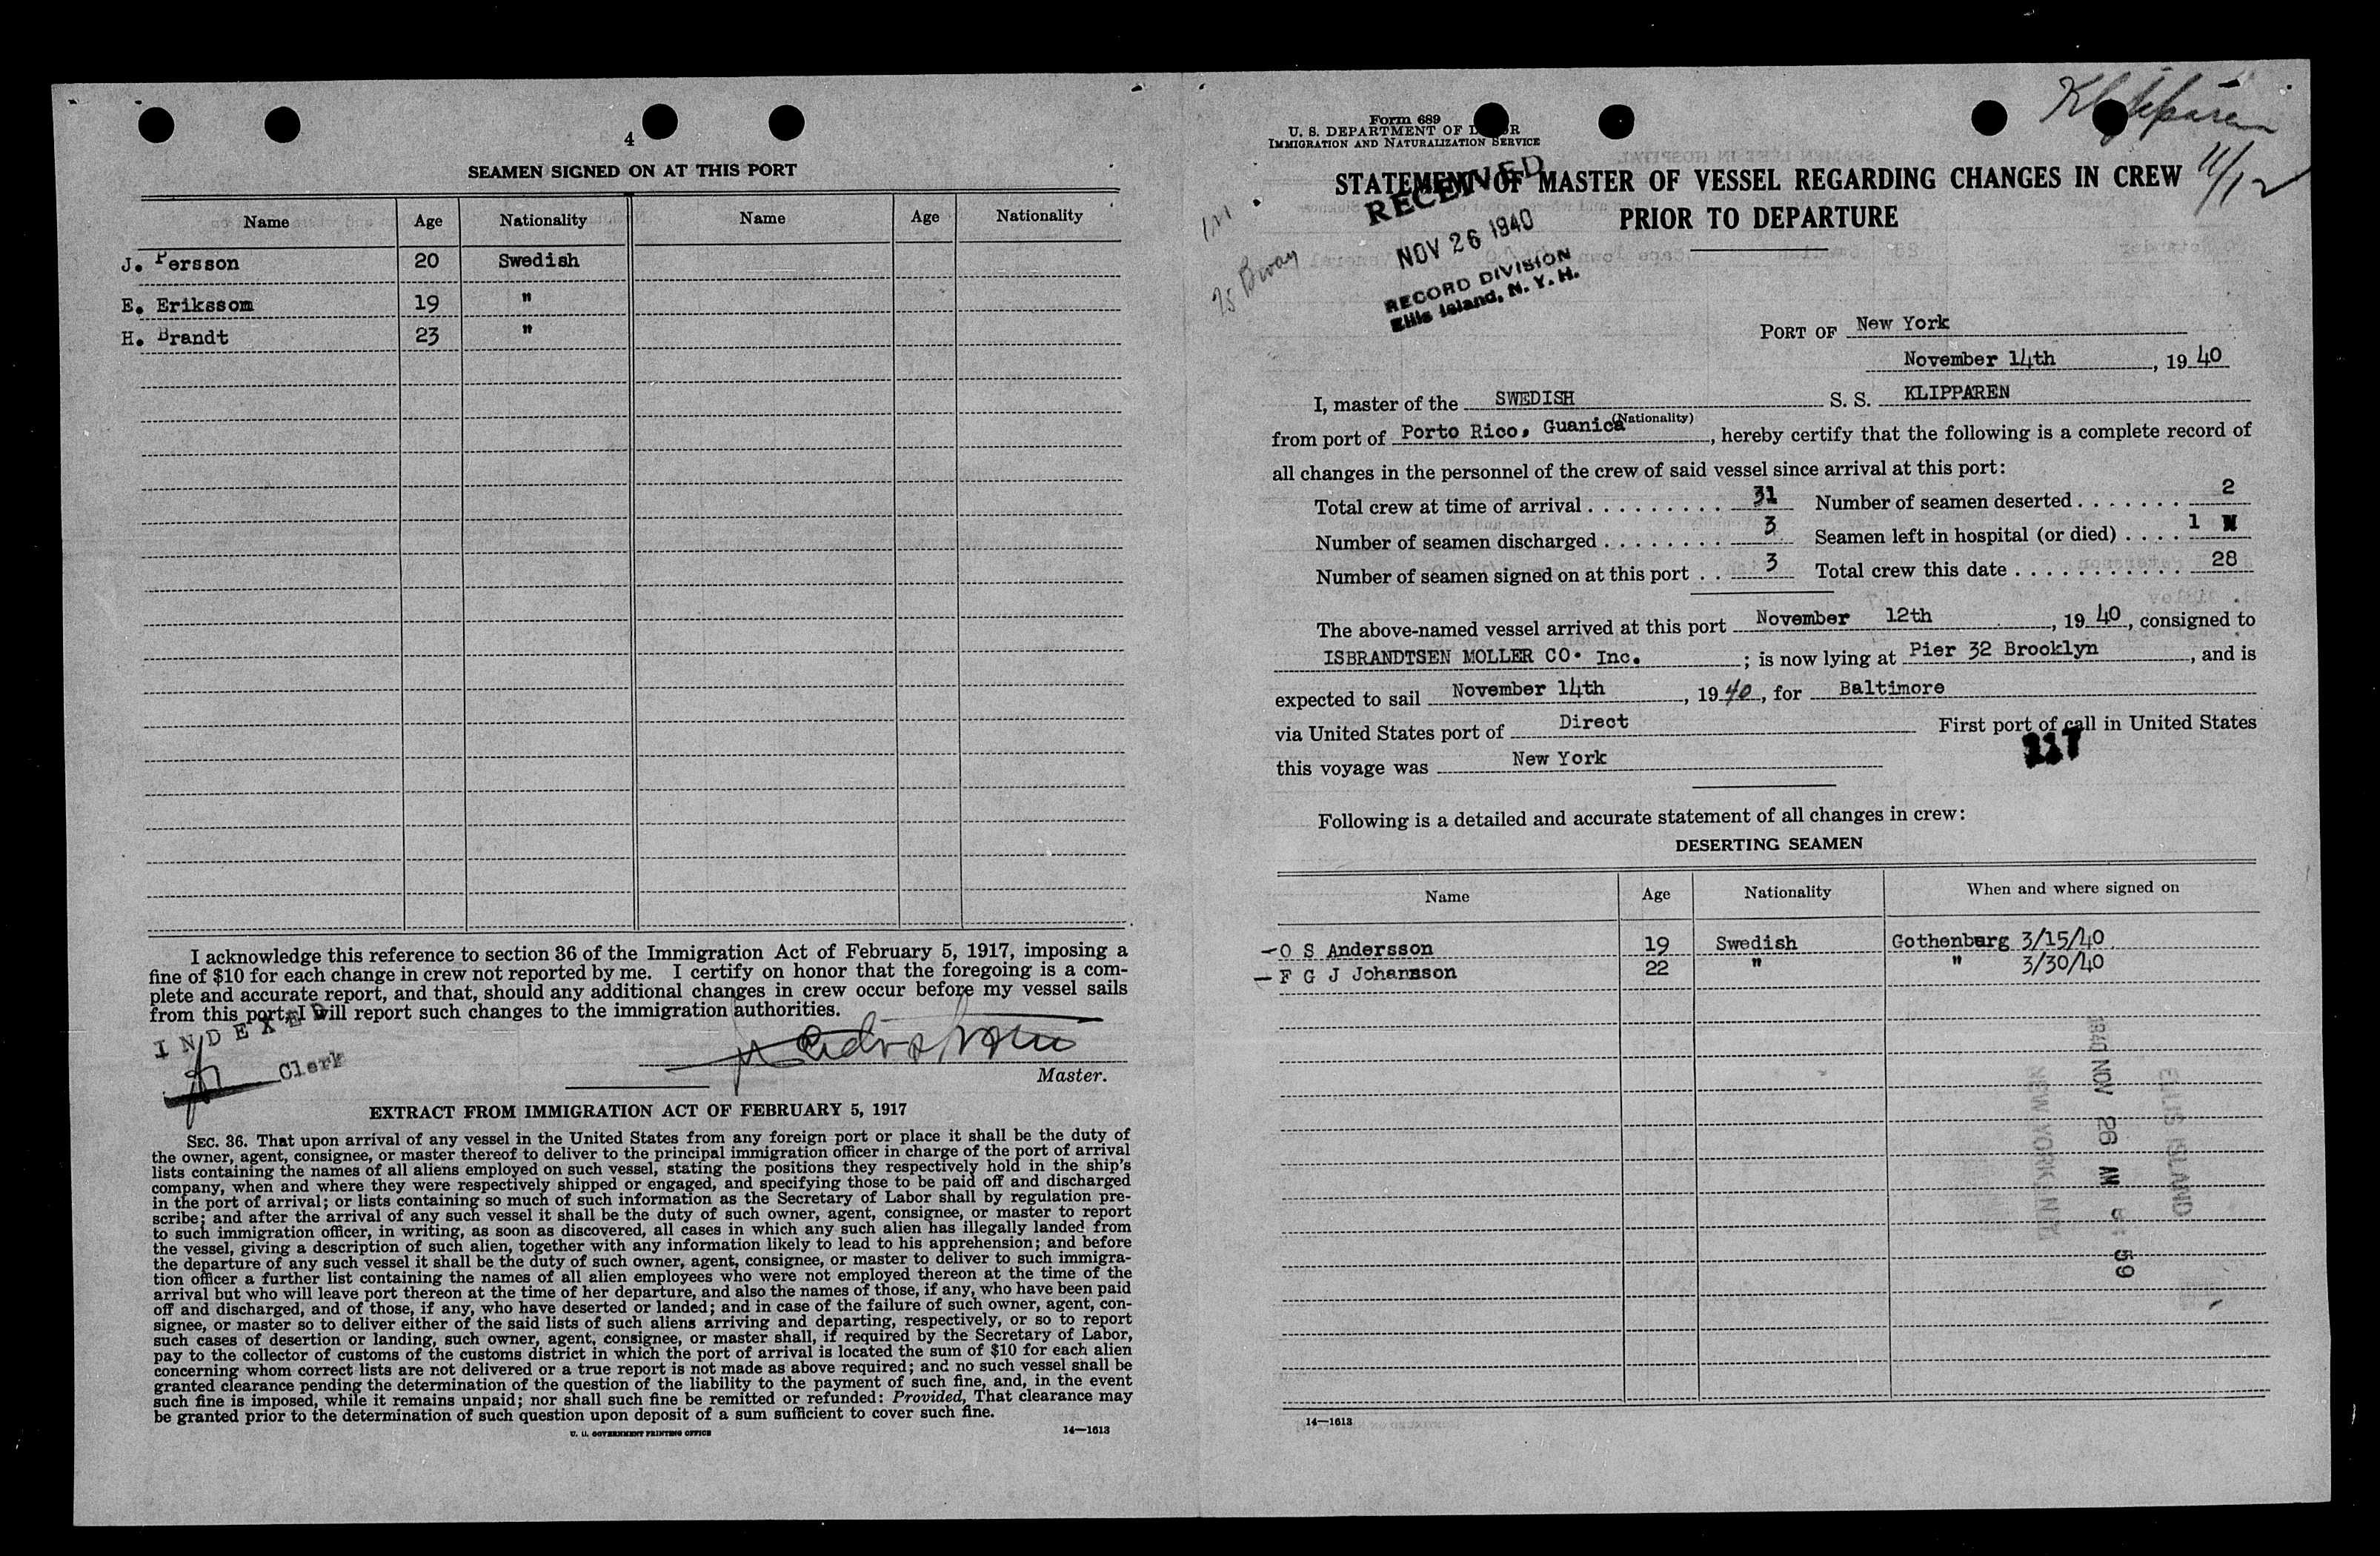 4
SEAMEN SIGNED ON AT THIS PORT
Name Age Nationality Name Age Nationality
J. Persson 20 Swedish
E. Erikssom 19 "
H. Brandt 23 "
I acknowledge this reference to section 36 of the Immigration Act of February 5, 1917, imposing a
fine of $10 for each change in crew not reported by me. I certify on honor that the foregoing is a com-
plete and accurate report, and that, should any additional changes in crew occur before my vessel sails
from this port, I will report such changes to the immigration authorities.
INDEXED
Clerk
Master.
EXTRACT FROM IMMIGRATION ACT OF FEBRUARY 5, 1917
SEC. 36. That upon arrival of any vessel in the United States from any foreign port or place it shall be the duty of
the owner, agent, consignee, or master thereof to deliver to the principal immigration officer in charge of the port of arrival
lists containing the names of all aliens employed on such vessel, stating the positions they respectively hold in the ship's
company, when and where they were respectively shipped or engaged, and specifying those to be paid off and discharged
in the port of arrival; or lists containing so much of such information as the Secretary of Labor shall by regulation pre-
scribe; and after the arrival of any such vessel it shall be the duty of such owner, agent, consignee, or master to report
to such immigration officer, in writing, as soon as discovered, all cases in which any such alien has illegally landed from
the vessel, giving a description of such alien, together with any information likely to lead to his apprehension; and before
the departure of any such vessel it shall be the duty of such owner, agent, consignee, or master to deliver to such immigra-
tion officer a further list containing the names of all alien employees who were not employed thereon at the time of the
arrival but who will leave port thereon at the time of her departure, and also the names of those, if any, who have been paid
off and discharged, and of those, if any, who have deserted or landed; and in case of the failure of such owner, agent, con-
signee, or master so to deliver either of the said lists of such aliens arriving and departing, respectively, or so to report
such cases of desertion or landing, such owner, agent, consignee, or master shall, if required by the Secretary of Labor,
pay to the collector of customs of the customs district in which the port of arrival is located the sum of $10 for each alien
concerning whom correct lists are not delivered or a true report is not made as above required; and no such vessel shall be
granted clearance pending the determination of the question of the liability to the payment of such fine, and, in the event
such fine is imposed, while it remains unpaid; nor shall such fine be remitted or refunded: Provided, That clearance may
be granted prior to the determination of such question upon deposit of a sum sufficient to cover such fine.
U. S. GOVERNMENT PRINTING OFFICE 14—1613
Klipparen
11/12
Form 689
U. S. DEPARTMENT OF LABOR
IMMIGRATION AND NATURALIZATION SERVICE
STATEMENT OF MASTER OF VESSEL REGARDING CHANGES IN CREW
PRIOR TO DEPARTURE
RECEIVED
NOV 26 1940
RECORD DIVISION
Ellis Island, N. Y. H.
25 Bway
PORT OF New York
November 14th, 19 40
I, master of the SWEDISH S. S. KLIPPAREN
(Nationality)
from port of Porto Rico, Guanica, hereby certify that the following is a complete record of
all changes in the personnel of the crew of said vessel since arrival at this port:
Total crew at time of arrival . . . . . . . . . 31 Number of seamen deserted . . . . . . . 2
Number of seamen discharged . . . . . . . . 3 Seamen left in hospital (or died) . . . . 1
Number of seamen signed on at this port . . 3 Total crew this date . . . . . . . . . . . 28
The above-named vessel arrived at this port November 12th, 19 40, consigned to
ISBRANDTSEN MOLLER CO. Inc. ; is now lying at Pier 32 Brooklyn, and is
expected to sail November 14th, 19 40, for Baltimore
via United States port of Direct First port of call in United States
this voyage was New York
117
Following is a detailed and accurate statement of all changes in crew:
DESERTING SEAMEN
Name Age Nationality When and where signed on
—O S Andersson 19 Swedish Gothenburg 3/15/40
—F G J Johansson 22 " " 3/30/40
1940 NOV 26 AM
59
ELLIS ISLAND
NEW YORK
14—1613